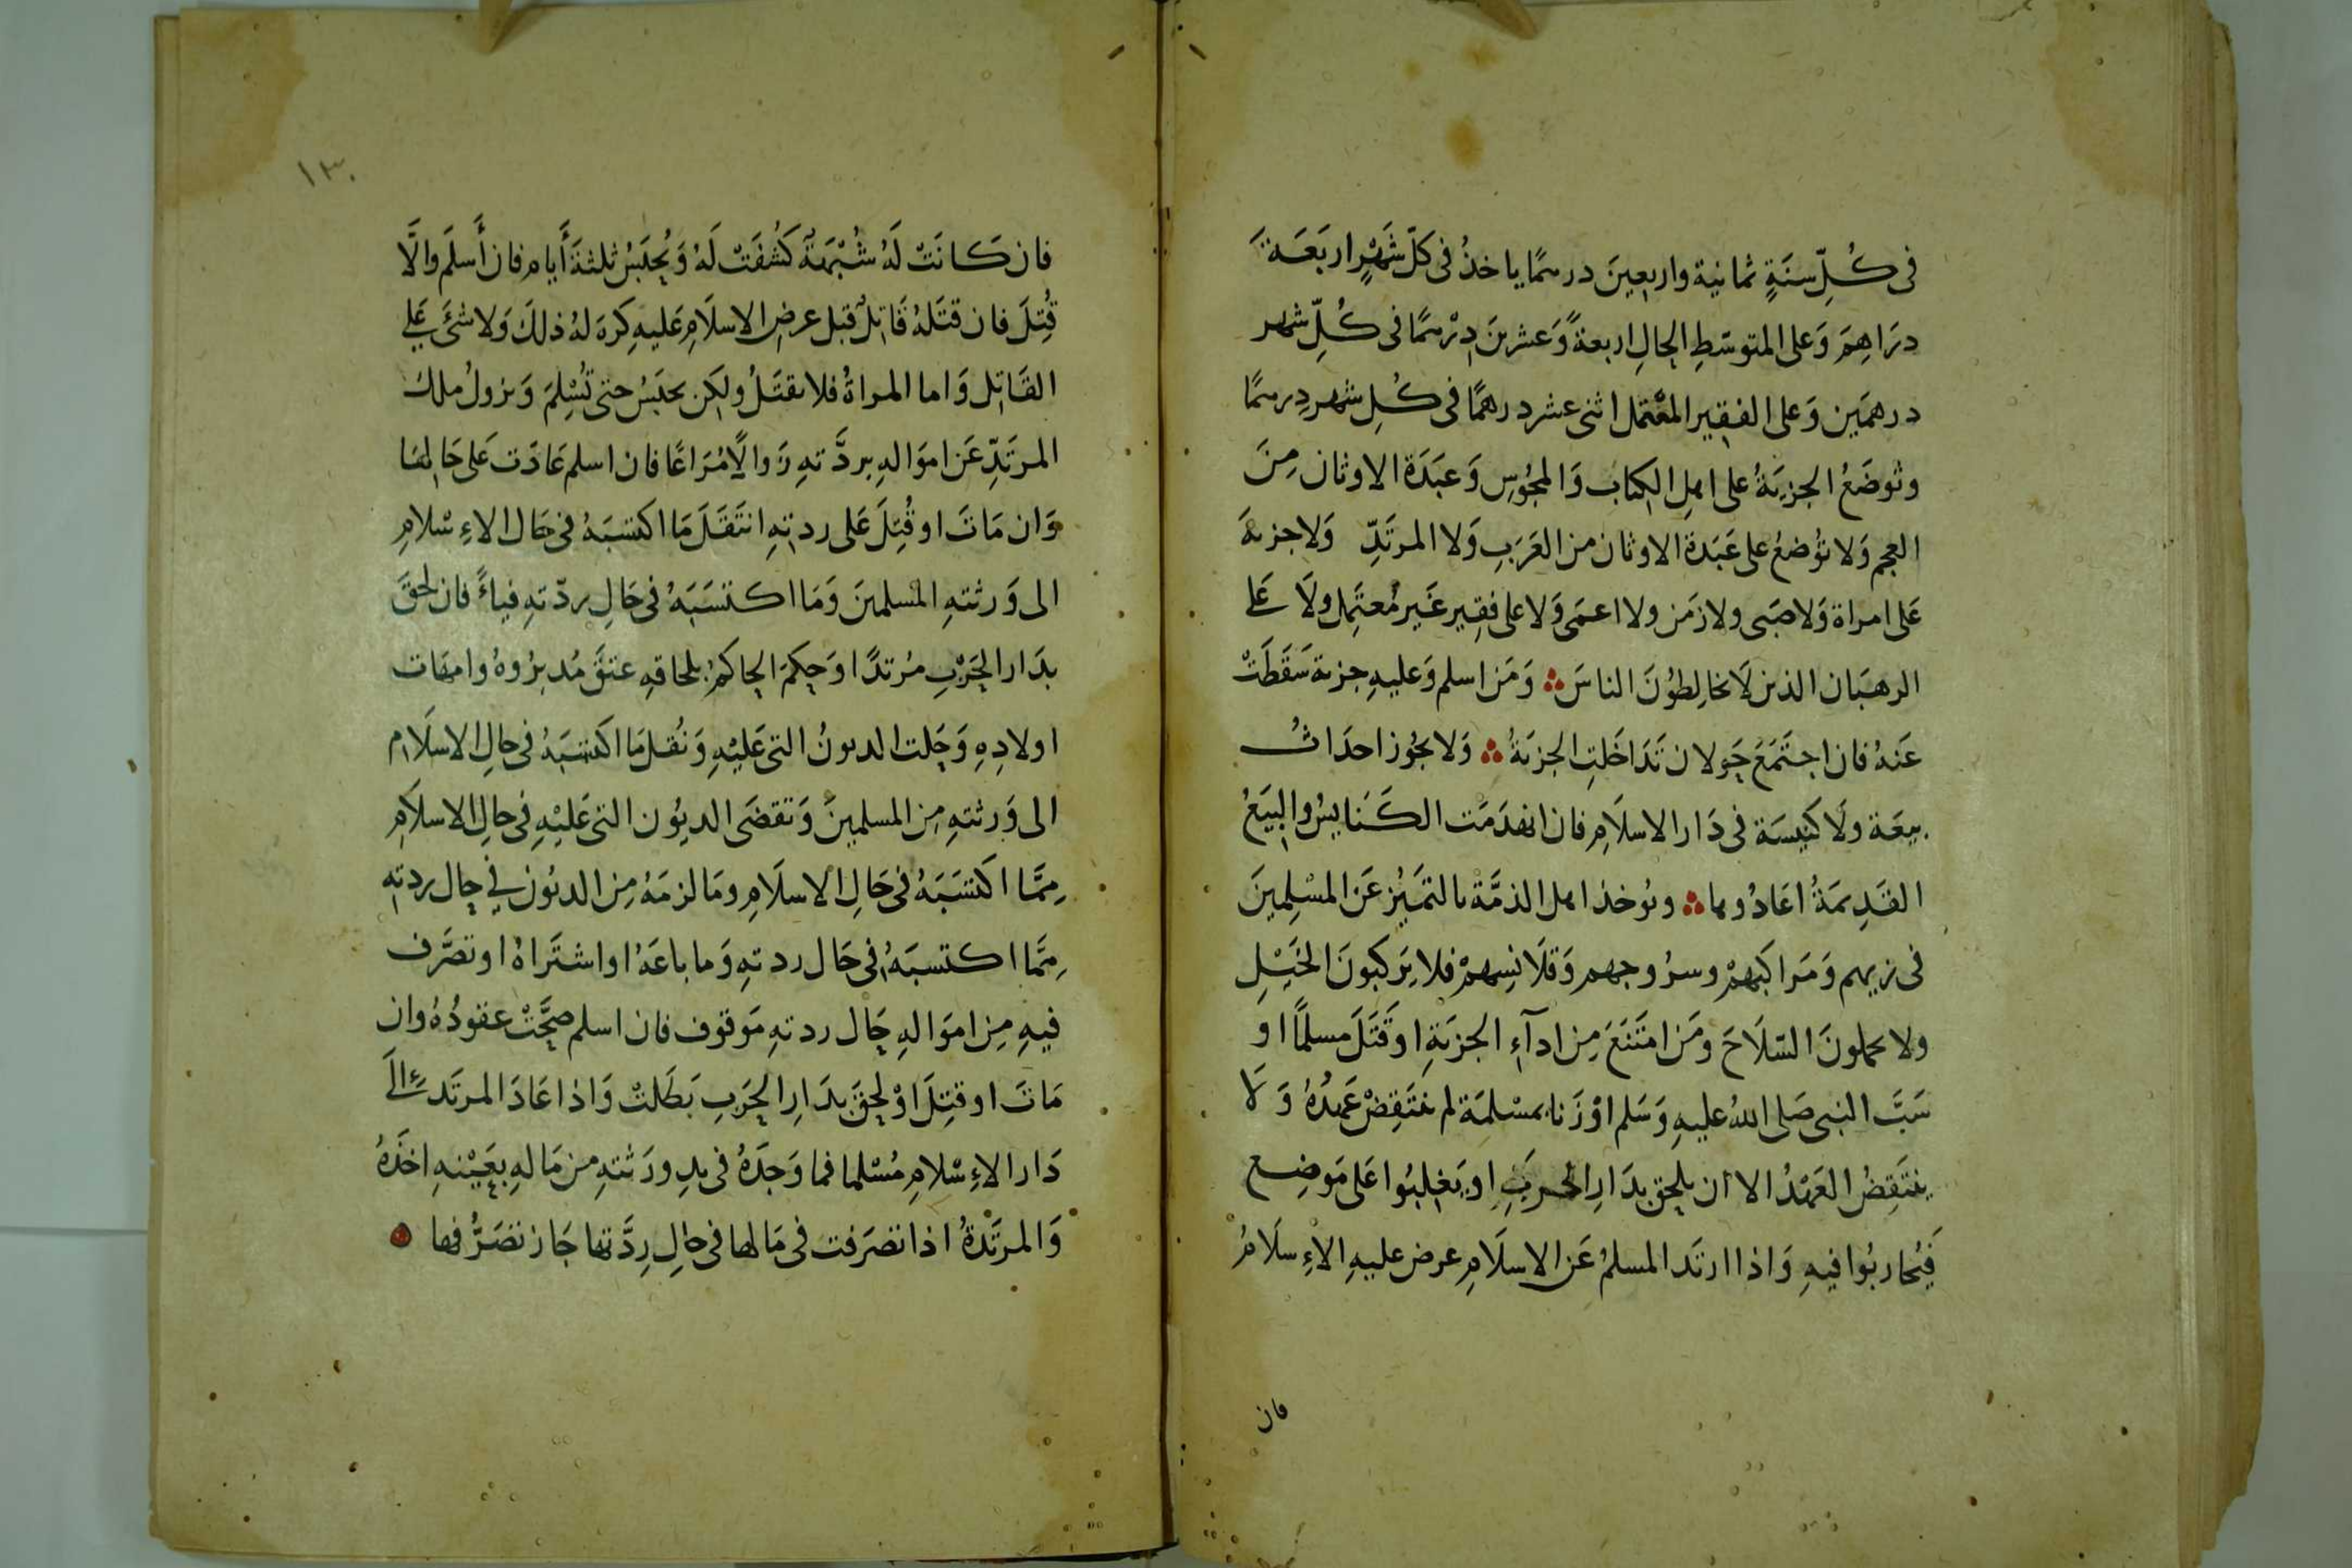 فى كُلِّ سنَةٍ ثمانية واربعينَ درهمًا ياخذُ فى كلّ شَهْرٍ اربَعَةَ
درَاهِمَ وَعلى المتوسّطِ الحالِ اربعةً وَعشرينَ دِرْهمًا فى كُلِّ شهر
درهمَين وَعلى الفقير المعْتمل اثنى عشر درهمًا فى كُلِ شهر دِرهمًا
وتوضَعُ الجزيَةُ على اهلِ الكتاب وَالمجُوسِ وَعبَدَة الاوثان مِنَ
العجم وَلا تُوضعُ على عَبَدة الاوثان من العَرَبِ وَلا المرتَدِّ وَلا جزيةَ
عَلى امراة وَلا صَبى ولا زمَن ولا اعمَى وَلا على فقِير غَير مُعتَمِل ولَا عَلى
الرهبَان الذين لَا يخالِطُونَ الناسَ وَمَن اسلم وَعليهِ جزية سَقَطَتْ
عَنهُ فان اجتَمَعَ حَولان تَدَاخَلتِ الجزيَةُ وَلا يجُوز احدَاثُ
بيعَة ولَا كنِيسَة فى دَار الاسلَامِ فان انهَدَمَت الكَنَايسُ والبِيَعُ
القَدِيمَةُ اعَادُوها ويُوخذ اهل الذمَّة بالتمَيُز عَن المسْلِمينَ
فى زيهم وَمَراكبهِمْ وسرُوجهم وَقلَانِسهِمْ فلا يَركبونَ الخَيْلِ
ولا يحملونَ السّلَاحَ ومَن امتَنَعَ مِن ادآءِ الجزيَةِ اوقَتَلَ مسلمًا او
سَبَّ النبى صَلى اللهُ عليهِ وَسَلم اوْ زَنا بمسْلمَة لم ينتَقِضْ عَهدُهُ وَلَا
ينتَقِضُ العَهْدُ الا ان يلحق بدَارِ الحربِ او يَغلِبُوا عَلى مَوضِع
فَيُحاربُوا فيهِ وَاذا ارتَد المسلمُ عَن الاسلَامِ عرض عليهِ الاِءسلَامُ
فان
١٣٠
فان كَانَتْ لَهُ شُبْهَةٌ كُشفَتْ لَهُ وَيُحبَسُ ثلثةَ أَيامِ فان أَسلَم والَّا
قُتِلَ فان قتَلهُ قَاتِلٌ قبل عرضِ الاسلَامِ عَليهِ كرِهَ لهُ ذلكَ وَلا شئَ عَلى
القَاتِل وَاما المراةُ فلا يقتَلُ ولكِن يحبَسُ حتى تُسْلِمَ وَيزولُ ملك
المرتَدِّ عَن اموَالهِ بردَّتهِ زَوالًا مُرَاعًا فان اسلم عَادَت عَلى حَالهَا
وَان مَاتَ او قُتِلَ عَلى ردتِهِ انتَقَلَ مَا اكتسَبَهُ فى حَال الاِءسْلامِ
الى وَرثتهِ المسلمينَ وَمَا اكتسَبَهُ فى حَالِ ردّتهِ فياءً فان لحقَ
بدَار الحَرْبِ مرُتدًا وَحكِمَ الحاكمُ بلحاقهِ عتقَ مُدبرُوهُ وامهَات
اولادِهِ وَحَلت الديونُ التى عَليْهِ وَنُقل مَا اكتسَبَهُ فى حالِ الاسلَام
الى وَرثتهِ مِن المسلمينَ وَتقضَى الديُون التى عَليْهِ فى حالِ الاسلَامِ
مِمَّا اكتسَبَهُ فى حَالِ الاسلَامِ ومَا لزمَهُ مِن الديُون فى حال ردتهِ
مِمَّا اكتسبَهُ فى حَال ردتهِ وَما باعَهُ اواشتَراهُ اوتصَّرف
فيهِ مِن اموَالهِ حَال ردتهِ مَوقوف فان اسلم صحَّتْ عقودُهُ وان
مَاتَ او قتِلَ اوْ لحِقَ بدَارِ الحَربِ بَطَلتْ وَاذا عَادَ المرتَد الَى
دَار الاِءسْلامِ مُسْلما فما وَجَدَهُ فى يدِ ورَثتهِ من مَالهِ بعَيْنهِ اخذَهُ
وَالمرتَدةُ اذا تصَرفت فى مَالها فى حالِ رِدَّتها جَاز تصَرُّفها